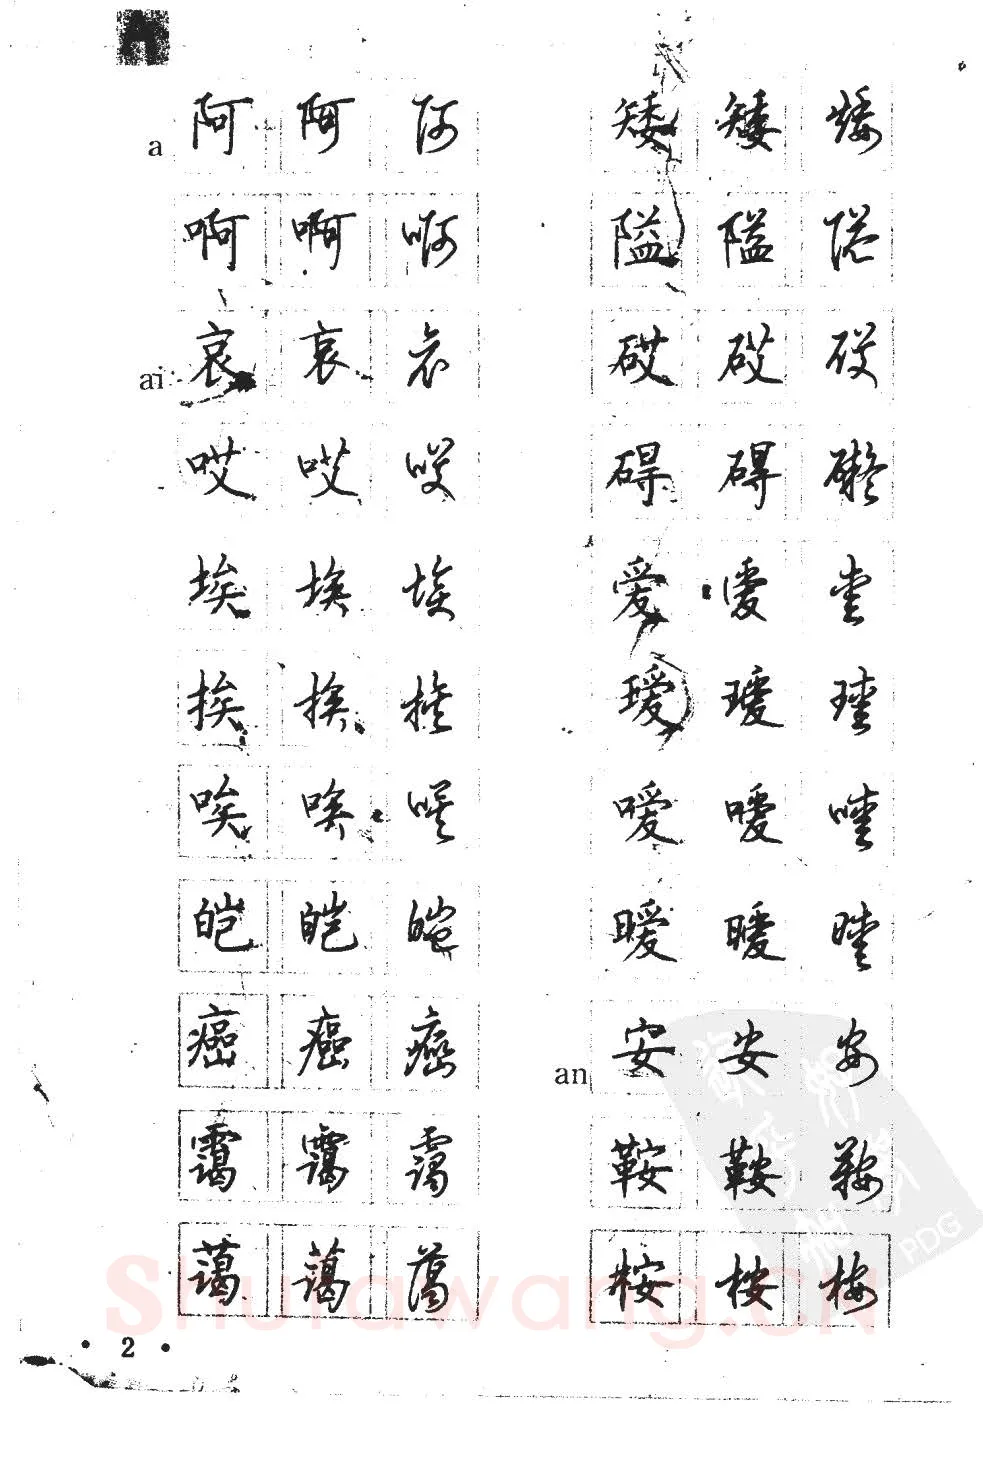 A
a 阿 阿 阿
啊 啊 啊
ai 哀 哀 哀
哎 哎 哎
埃 埃 埃
挨 挨 挨
唉 唉 唉
皑 皑 皑
癌 癌 癌
霭 霭 霭
蔼 蔼 蔼
矮 矮 矮
隘 隘 隘
砹 砹 砹
碍 碍 礙
爱 爱 爱
瑷 瑷 瑷
嗳 嗳 嗳
暧 暧 暧
an 安 安 安
鞍 鞍 鞍
桉 桉 桉
• 2 •
Shufawang.CN
PDG